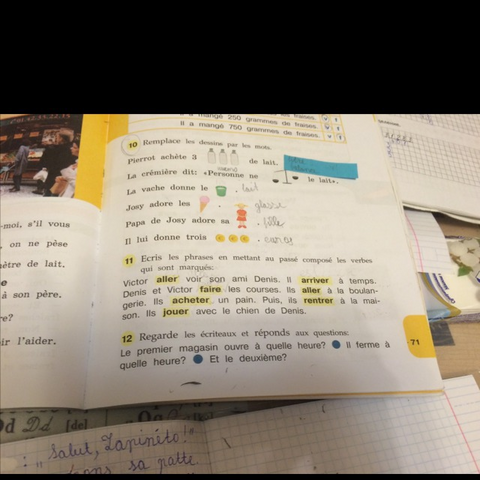 mangé 250 grammes de fraises.
Il a mangé 750 grammes de fraises.
10 Remplace les dessins par les mots.
Pierrot achète 3 de lait.
La crémière dit: «Personne ne le lait».
La vache donne le . lait
Josy adore les . glasse
Papa de Josy adore sa . fille
Il lui donne trois .
11 Ecris les phrases en mettant au passé composé les verbes
qui sont marqués:
Victor aller voir son ami Denis. Il arriver à temps.
Denis et Victor faire les courses. Ils aller à la boulan-
gerie. Ils acheter un pain. Puis, ils rentrer à la mai-
son. Ils jouer avec le chien de Denis.
12 Regarde les écriteaux et réponds aux questions:
Le premier magasin ouvre à quelle heure? Il ferme à
quelle heure? Et le deuxième?
71
-moi, s'il vous
, on ne pèse
mètre de lait.
e
à son père.
re?
ir l'aider.
Dd [de]
: „Salut, Zapinéto!"
dans sa patte